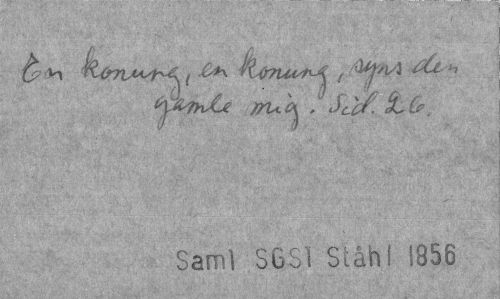 En konung, en konung, syns den
gamle mig. Sid. 26.
Saml SGSl Ståhl 1856